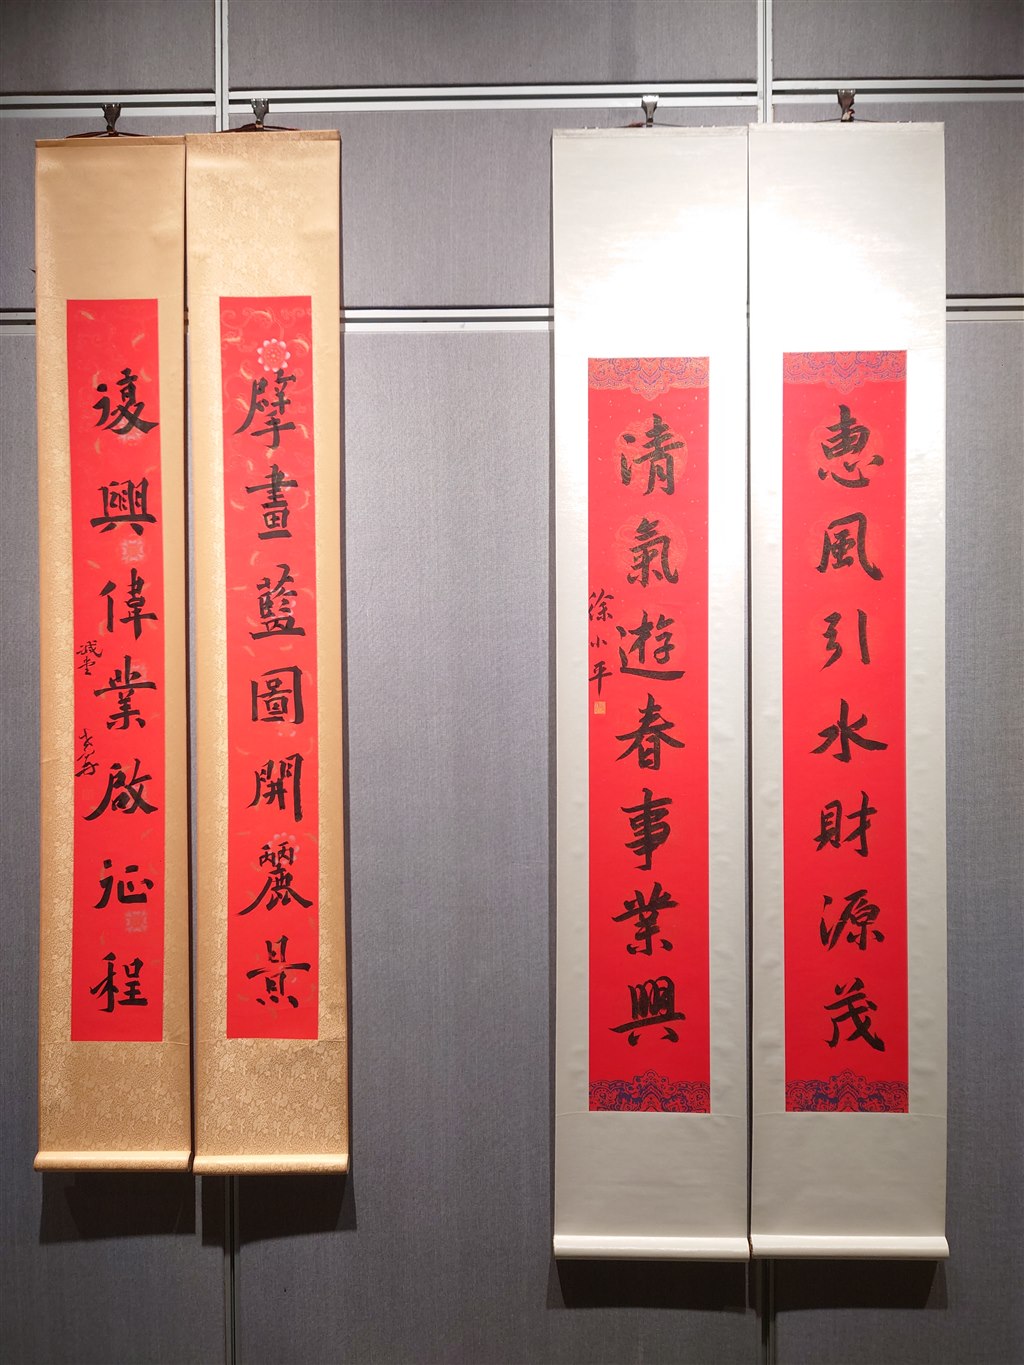 惠風引水財源茂
清氣遊春事業興
徐小平
擘畫藍圖開麗景
復興偉業啟征程